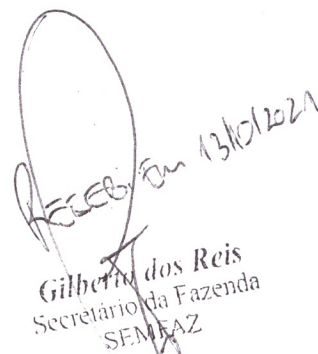 Recebi Em 13/10/2021
Gilberto dos Reis
Secretário da Fazenda
SEMFAZ